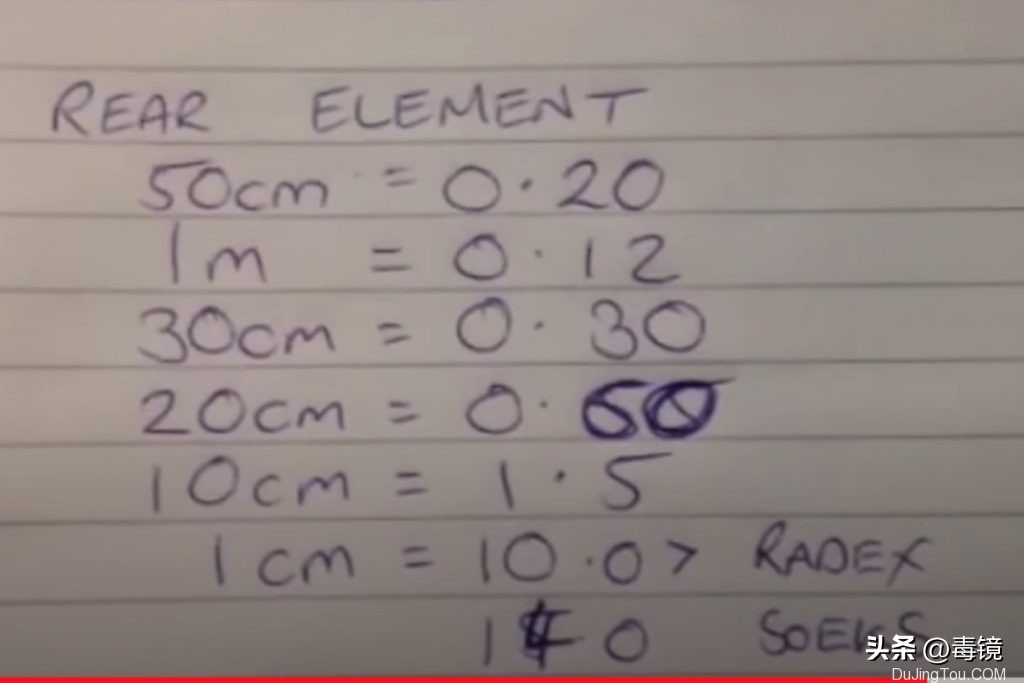 REAR ELEMENT
50cm = 0.20
1m = 0.12
30cm = 0.30
20cm = 0.60
10cm = 1.5
1cm = 10.0> RADEX
SOEKS
头条 @毒镜
DuJingTou.COM